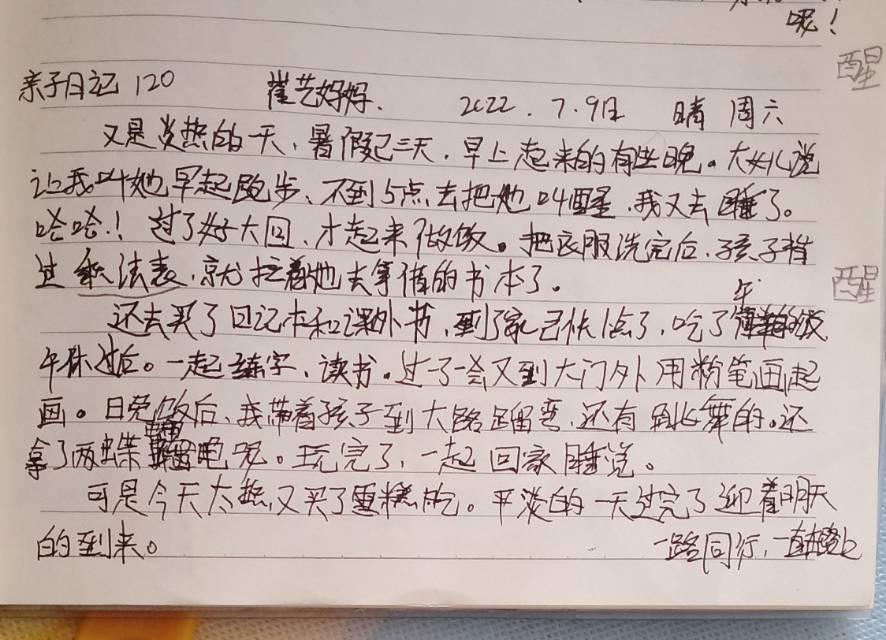 呢！
醒
亲子日记 120 崔艺妈妈. 2022.7.9日 晴 周六
又是炎热的一天，暑假已三天，早上起来的有些晚。大女儿说
让我叫她早起跑步、不到5点去把她叫醒，我又去睡了。
哈哈！过了好大回，才起来做饭。把衣服洗完后，孩子背
过乘法表，就拉着她去拿借的书本了。
醒
还去买了日记本和课外书，到了家已快1点了，吃了午饭
午休过后。一起练字、读书。过了一会又到大门外用粉笔画起
画。日晚饭后、我带着孩子到大路蹓弯，还有跳舞的。还
拿了两蝶呢。玩完了，一起回家睡觉。
可是今天太热，又买了雪糕吃。平淡的一天过完了迎着明天
的到来。
一路同行，一直在路上